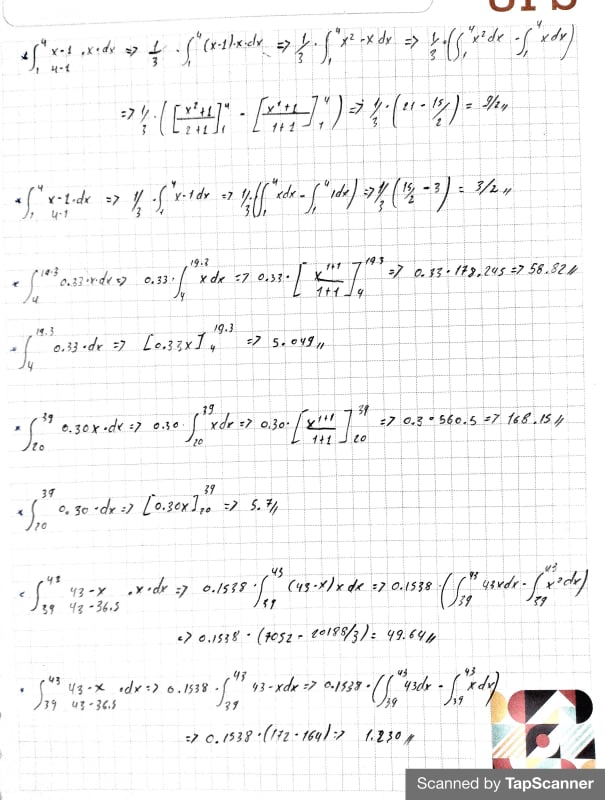 UPS
* ∫₁⁴ x-1/4-1 . x.dx => 1/3 . ∫₁⁴ (x-1).x.dx => 1/3 . ∫₁⁴ x² - x dx => 1/3 . (∫₁⁴ x² dx - ∫₁⁴ x dx)
=> 1/3 . ([x²+1/2+1]₁⁴ - [x¹+1/1+1]₁⁴) => 1/3 . (21 - 15/2) = 9/2 //
* ∫₁⁴ x-1/4-1 . dx => 1/3 . ∫₁⁴ x-1 dx => 1/3 . (∫₁⁴ xdx - ∫₁⁴ 1dx) => 1/3 (15/2 - 3) = 3/2 //
* ∫₄^19.3 0.33.x.dx => 0.33 . ∫₄^19.3 x dx => 0.33 . [x^1+1/1+1]₄^19.3 => 0.33 . 178.245 => 58.82 //
* ∫₄^19.3 0.33 . dx => [0.33x]₄^19.3 => 5.049 //
* ∫₂₀³⁹ 0.30x . dx => 0.30 . ∫₂₀³⁹ xdx => 0.30 . [x^1+1/1+1]₂₀³⁹ => 0.3 . 560.5 => 168.15 //
* ∫₂₀³⁹ 0.30 . dx => [0.30x]₂₀³⁹ => 5.7 //
* ∫₃₉⁴³ 43-x/43-36.5 . x.dx => 0.1538 . ∫₃₉⁴³ (43-x)x dx => 0.1538 . (∫₃₉⁴³ 43xdx - ∫₃₉⁴³ x² dx)
=> 0.1538 . (7052 - 20188/3) = 49.64 //
* ∫₃₉⁴³ 43-x/43-36.5 . dx => 0.1538 . ∫₃₉⁴³ 43-xdx => 0.1538 . (∫₃₉⁴³ 43dx - ∫₃₉⁴³ x dx)
=> 0.1538 . (172 - 164) => 1.230 //
Scanned by TapScanner